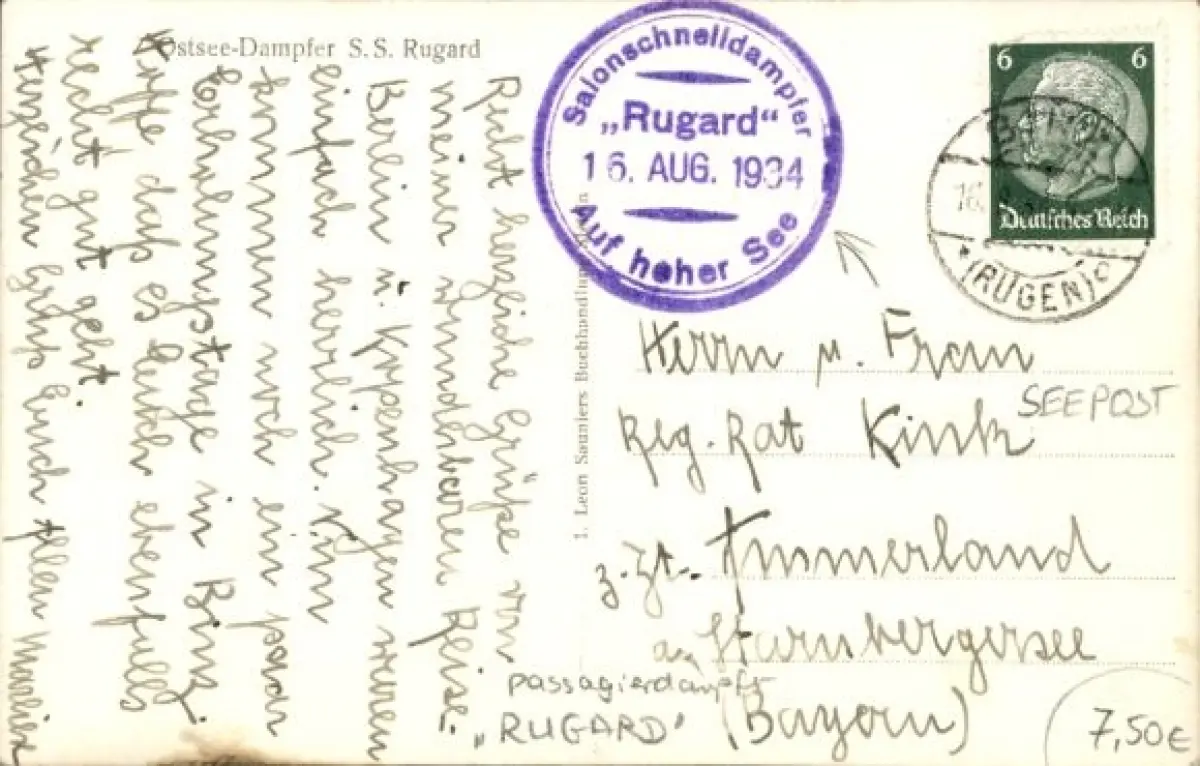 Ostsee-Dampfer S.S. Rugard
Recht herzliche Grüße von
meiner wunderbaren Reise.
Berlin u. Kopenhagen waren
einfach herrlich. Nun
kommen noch ein paar
Erholungstage in Binz.
Hoffe daß es Euch ebenfalls
recht gut geht.
Herzlichen Gruß Euch Allen
1. Leon Sauniers Buchhandlung
Salonschnelldampfer
„Rugard“
16. AUG. 1934
Auf hoher See
6 6
Deutsches Reich
16.
*(RÜGEN)c
Herrn u. Frau
SEEPOST
Reg. Rat
z. Zt. Ammerland
a. Starnbergersee
(Bayern)
passagierdampfer
„RUGARD"
7,50€